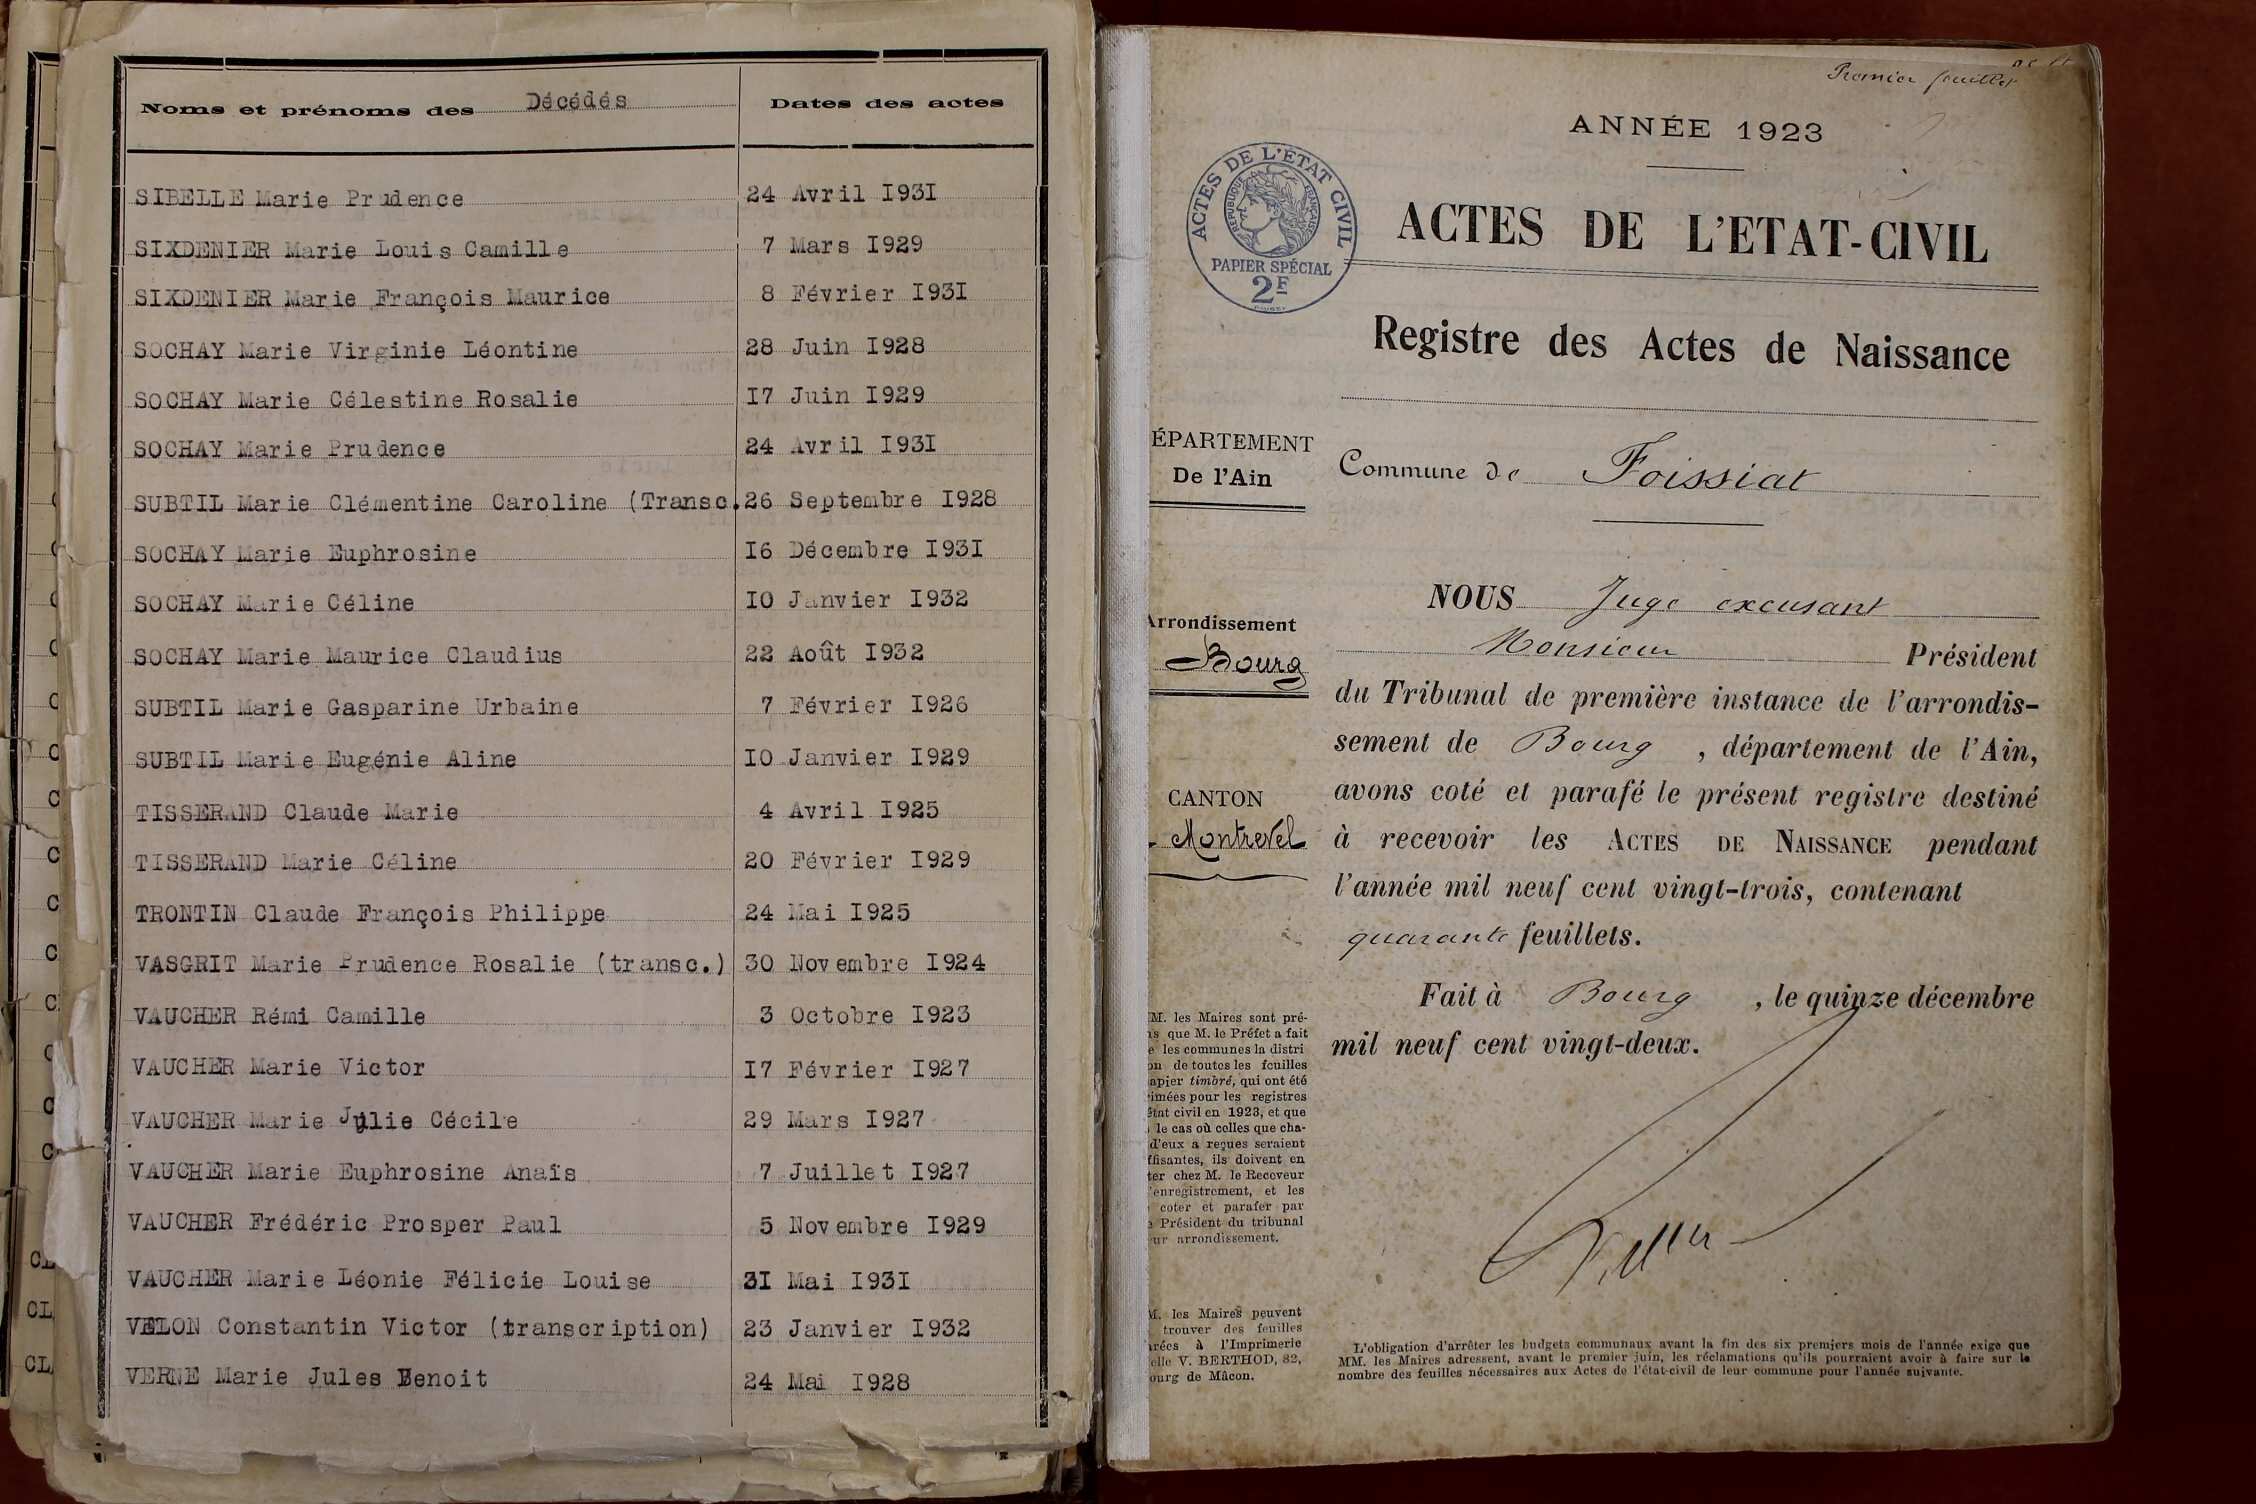 Noms et prénoms des Décédés Dates des actes
SIBELLE Marie Prudence 24 Avril I93I
SIXDENIER Marie Louis Camille 7 Mars I929
SIXDENIER Marie François Maurice 8 Février I93I
SOCHAY Marie Virginie Léontine 28 Juin I928
SOCHAY Marie Célestine Rosalie I7 Juin I929
SOCHAY Marie Prudence 24 Avril I93I
SUBTIL Marie Clémentine Caroline (Transc. 26 Septembre I928
SOCHAY Marie Euphrosine I6 Décembre I93I
SOCHAY Marie Céline IO Janvier I932
SOCHAY Marie Maurice Claudius 22 Août I932
SUBTIL Marie Gasparine Urbaine 7 Février I926
SUBTIL Marie Eugénie Aline IO Janvier I929
TISSERAND Claude Marie 4 Avril I925
TISSERAND Marie Céline 20 Février I929
TRONTIN Claude François Philippe 24 Mai I925
VASGRIT Marie Prudence Rosalie (transc.) 30 Novembre I924
VAUCHER Rémi Camille 3 Octobre I923
VAUCHER Marie Victor I7 Février I927
VAUCHER Marie Julie Cécile 29 Mars I927
VAUCHER Marie Euphrosine Anaïs 7 Juillet I927
VAUCHER Frédéric Prosper Paul 5 Novembre I929
VAUCHER Marie Léonie Félicie Louise 3I Mai I93I
VELON Constantin Victor (transcription) 23 Janvier I932
VERNE Marie Jules Benoit 24 Mai I928
Premier feuillet
ANNÉE 1923
ACTES DE L'ETAT CIVIL
REPUBLIQUE FRANÇAISE
PAPIER SPÉCIAL
2F
ACTES DE L'ETAT-CIVIL
Registre des Actes de Naissance
ÉPARTEMENT
De l'Ain
Commune de Foissiat
Arrondissement
Bourg
CANTON
Montrevel
NOUS Juge excusant
Monsieur Président
du Tribunal de première instance de l'arrondis-
sement de Bourg, département de l'Ain,
avons coté et parafé le présent registre destiné
à recevoir les ACTES DE NAISSANCE pendant
l'année mil neuf cent vingt-trois, contenant
quarante feuillets.
Fait à Bourg, le quinze décembre
mil neuf cent vingt-deux.
M. les Maires sont pré-
que M. le Préfet a fait
les communes la distri
on de toutes les feuilles
apier timbré, qui ont été
imées pour les registres
état civil en 1923, et que
le cas où celles que cha-
d'eux a reçues seraient
ffisantes, ils doivent en
ter chez M. le Receveur
l'enregistrement, et les
coter et parafer par
Président du tribunal
ur arrondissement.
M. les Maires peuvent
trouver des feuilles
rées à l'Imprimerie
elle V. BERTHOD, 82,
ourg de Mâcon.
L'obligation d'arrêter les budgets communaux avant la fin des six premiers mois de l'année exige que
MM. les Maires adressent, avant le premier juin, les réclamations qu'ils pourraient avoir à faire sur le
nombre des feuilles nécessaires aux Actes de l'état-civil de leur commune pour l'année suivante.